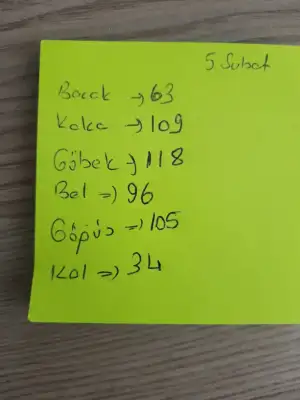 5 Subat
Bacak → 63
Kalca → 109
Göbek → 118
Bel => 96
Göğüs => 105
Kol => 34